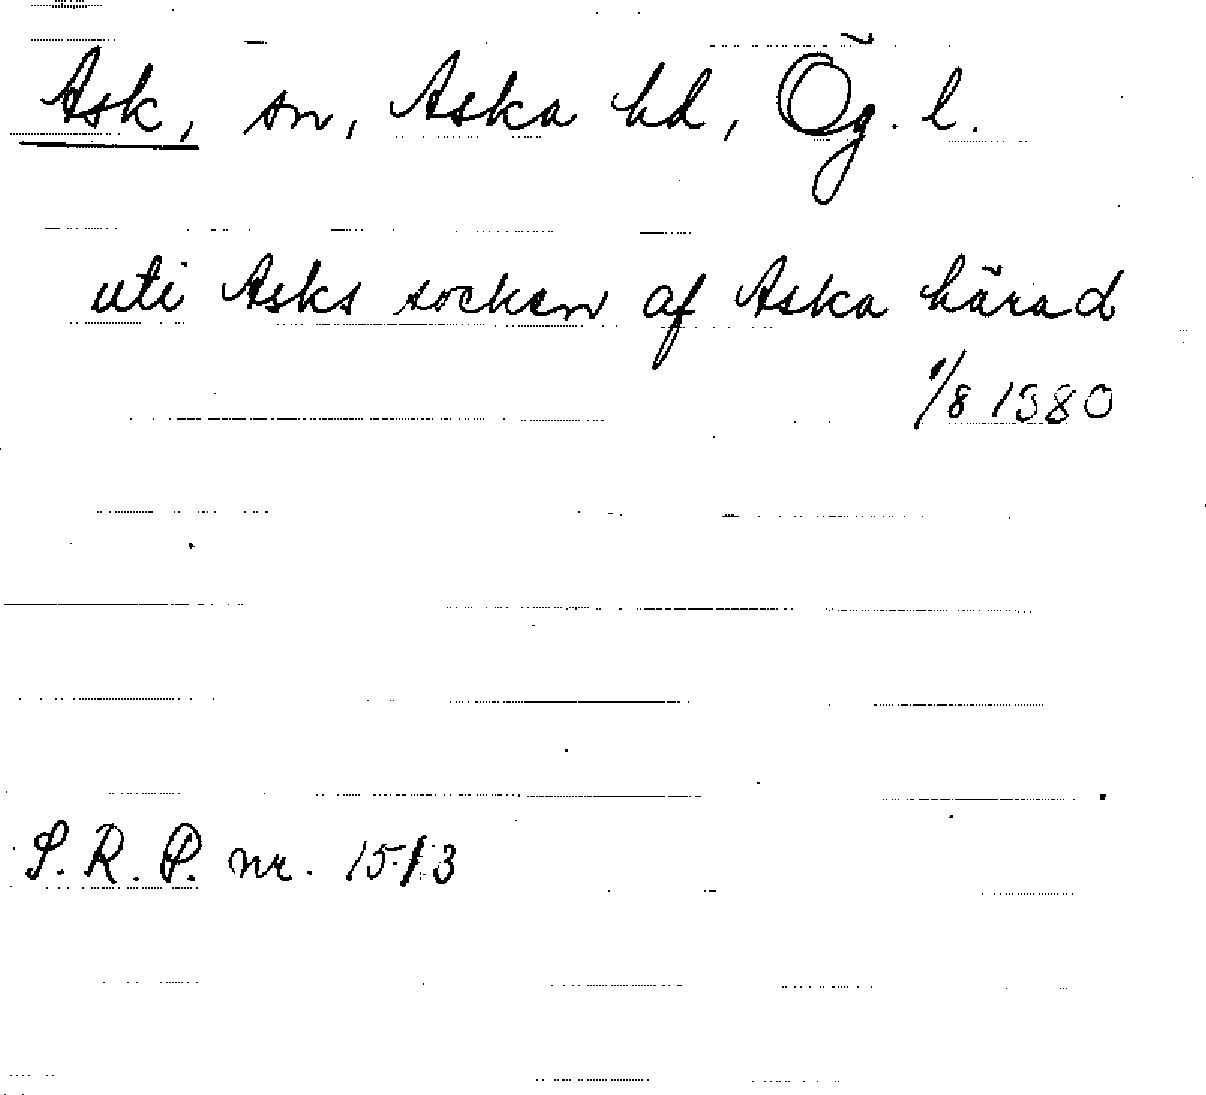 Ask, sn, Aska hd, Ög. l.
uti Asks socken af Aska härad
1/8 1380
S. R. P. nr. 1513